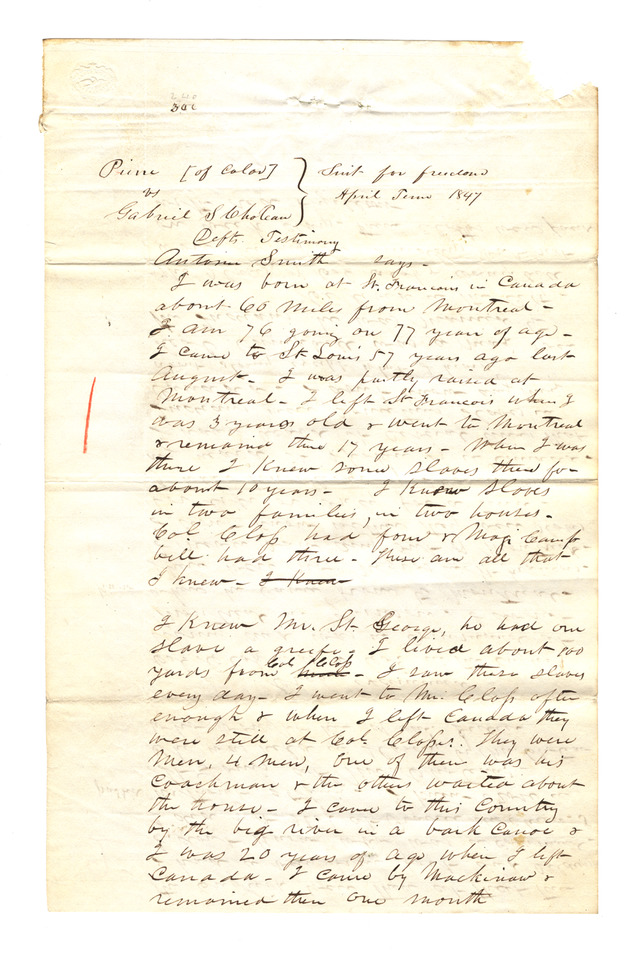 Pierre [of Color] } Suit for freedom
vs April Term 1847
Gabriel S Choteau
Defts. Testimony
Antoine Smith says -
I was born at St. Francois in Canada
about 60 miles from Montreal -
I am 76 going on 77 years of age -
I came to St Louis 57 years ago last
August - I was partly raised at
Montreal - I left St Francois when I
was 3 years old & went to Montreal
& remained there 17 years - When I was
there I knew some slaves there for
about 10 years - I knew slaves
in two families, in two houses -
Col. Closs had four & Maj. Camp
bell had three - These are all that
I knew - I knew
I knew Mr. St. George, he had one
slave a greife - I lived about 100
yards from Col Closs - I saw these slaves
every day - I went to Mr. Closs often
enough & when I left Canada they
were still at Col Closs'. They were
Men, 4 men, one of them was his
Coachman & the others waited about
the house - I came to this Country
by the big river in a bark Canoe &
I was 20 years of age when I left
Canada - I came by Mackinaw &
remained there one month